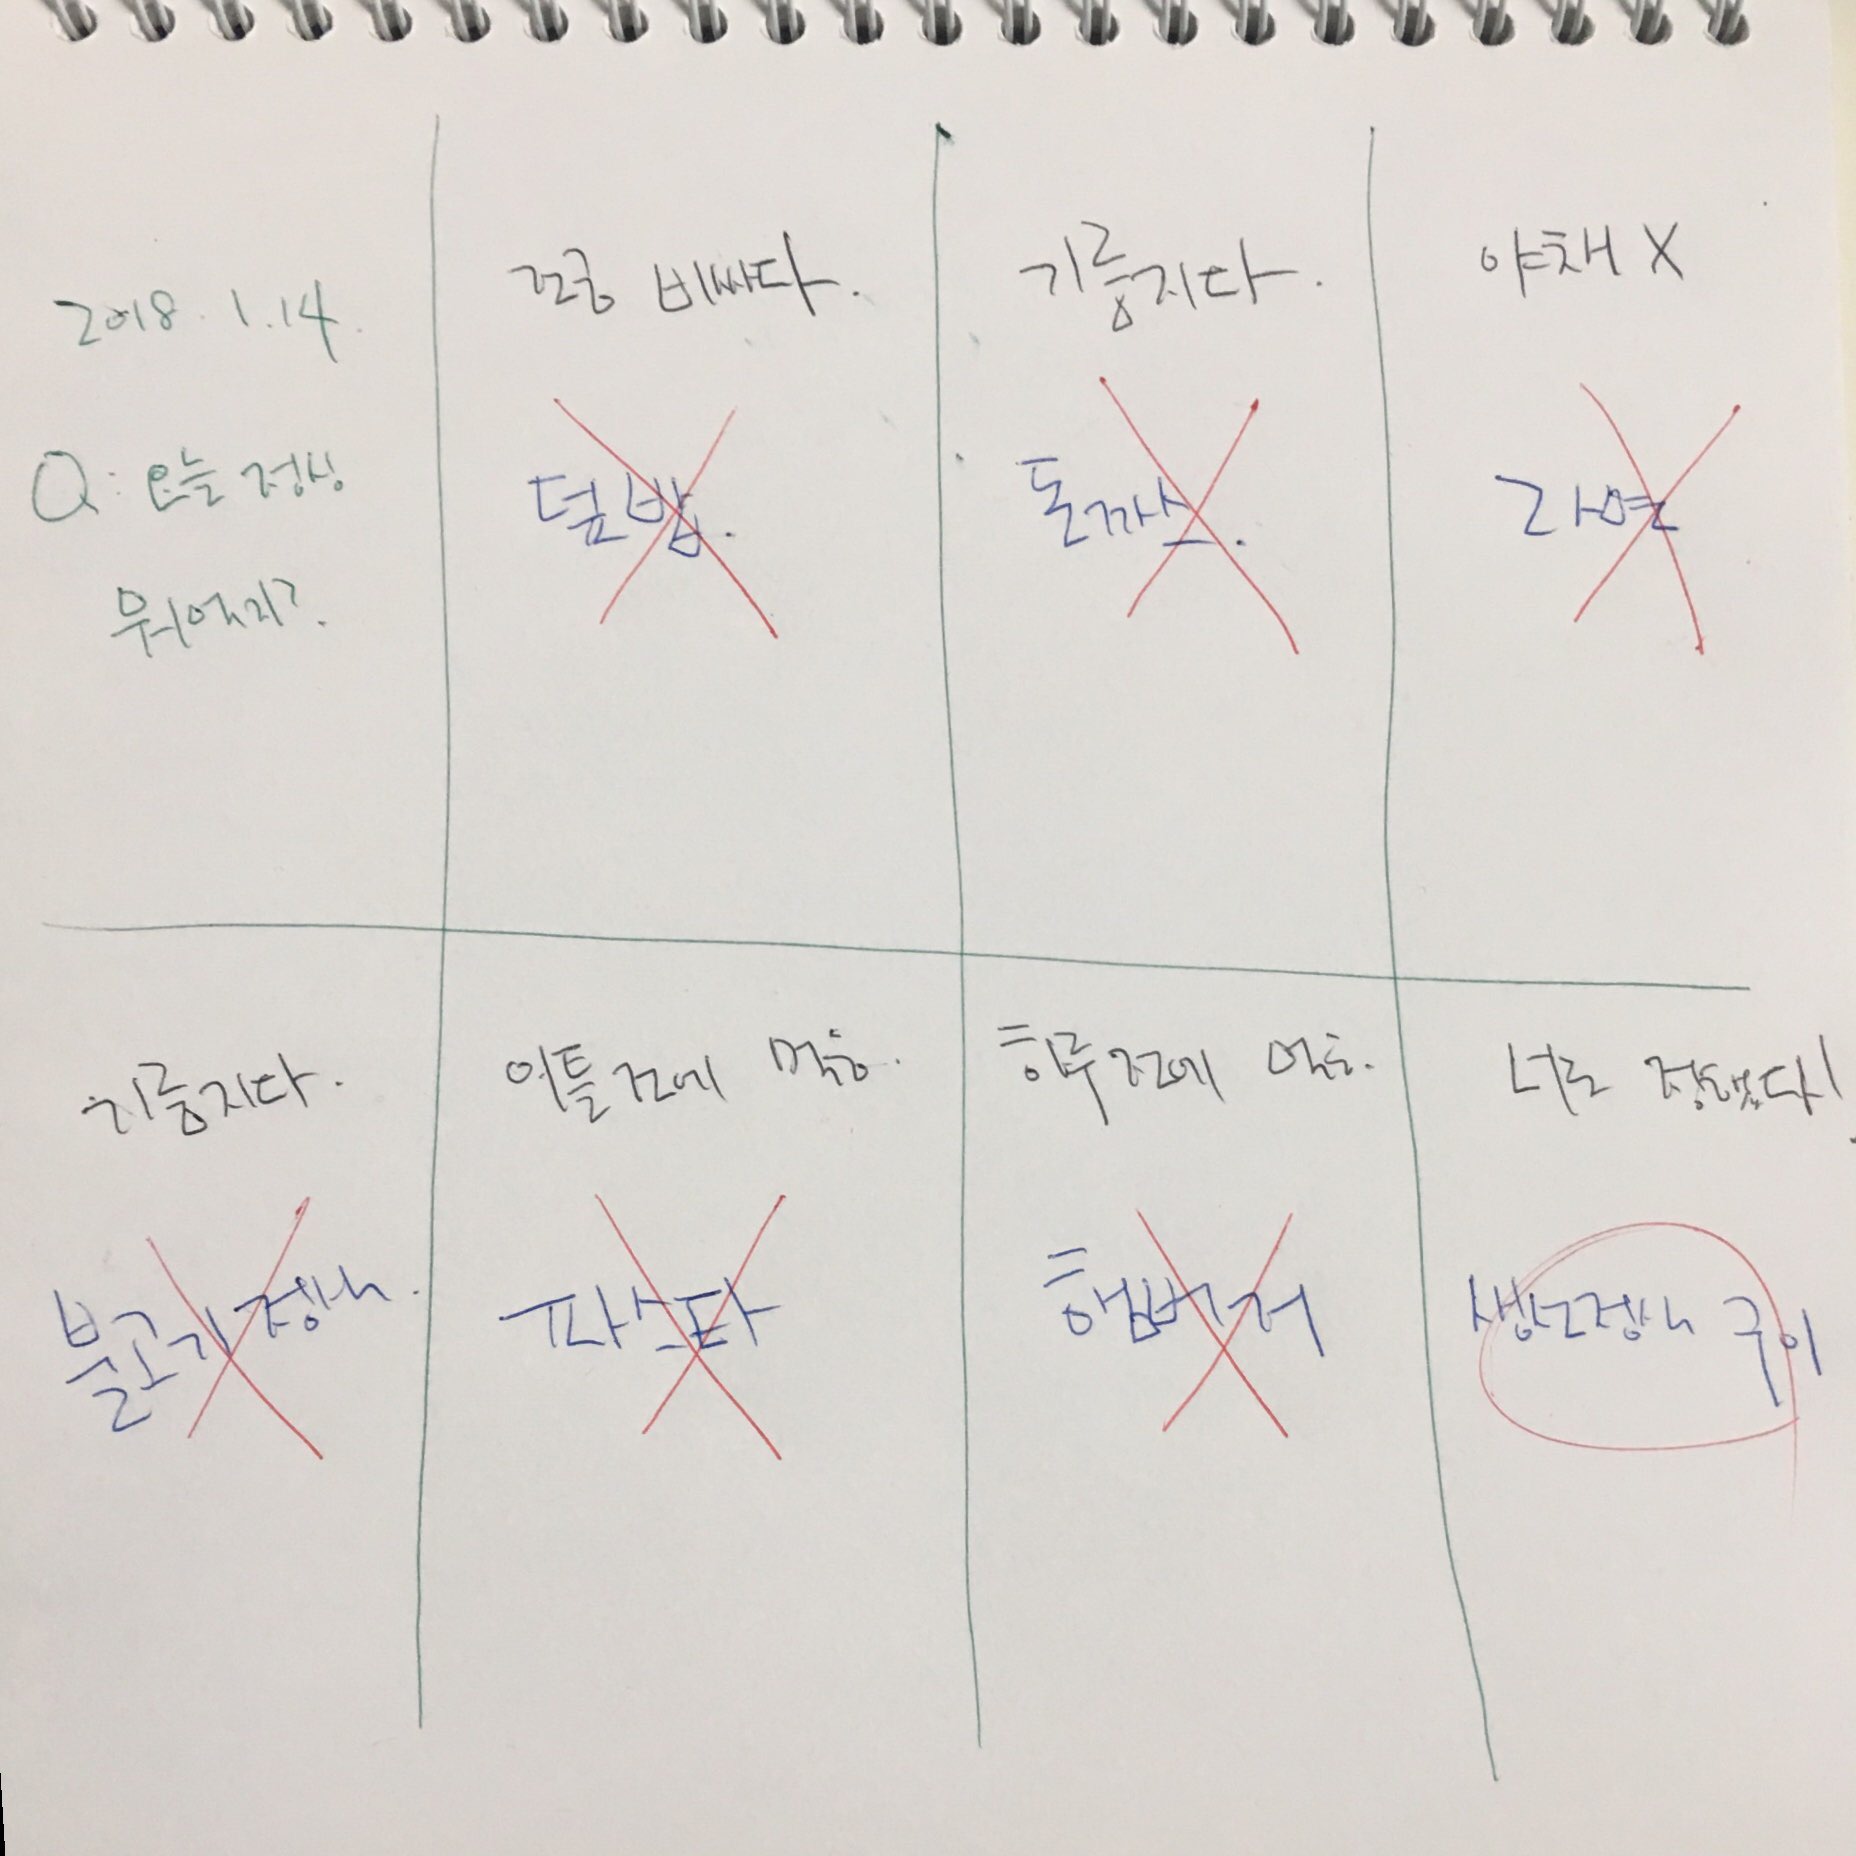 2018. 1.14.
Q: 오늘 점심
뭐먹지?
조금 비싸다.
덮밥.
기름지다.
돈까스.
야채 X
라면
기름지다.
불고기 정식.
이틀전에 먹음.
파스타
하루전에 먹음.
햄버거
너로 정했다!
생선정식 구이